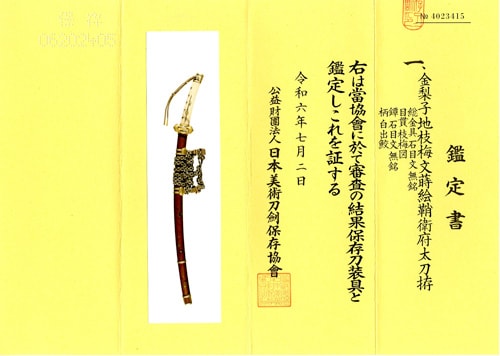 № 4023415
鑑定書
一、金梨子地枝梅文蒔絵鞘衛府太刀拵
総金具石目文 無銘
目貫枝梅図
鐔石目文 無銘
柄白出鮫
右は當協會に於て審査の結果保存刀装具と
鑑定しこれを証する
令和六年七月二日
公益財團法人 日本美術刀劍保存協會
06202405